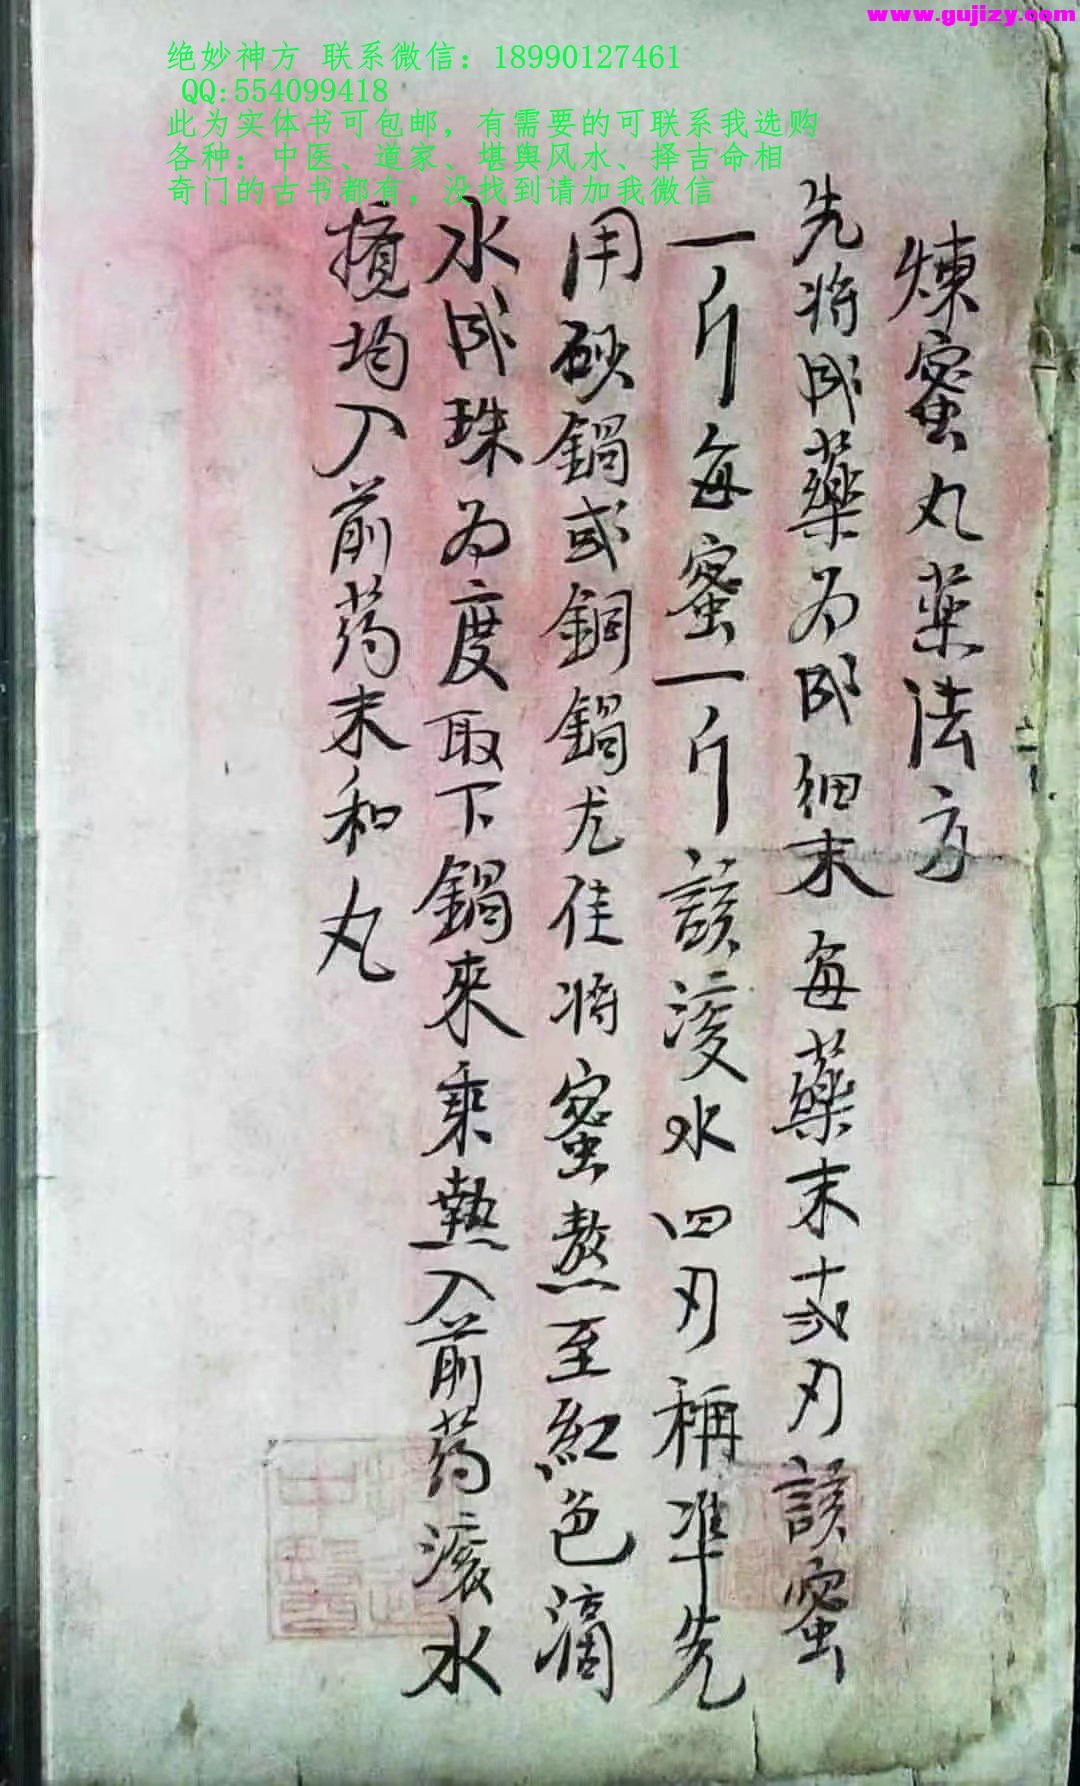 www.gujizy.com
绝妙神方 联系微信：18990127461
QQ:554099418
此为实体书可包邮，有需要的可联系我选购
各种：中医、道家、堪舆风水、择吉命相
奇门的古书都有，没找到请加我微信
煉蜜丸薬法方
先将成藥为成细末每藥末十弍刄該蜜
一斤每蜜一斤該滾水四刄稱准先
用砂鍋或銅鍋尤佳将蜜熬至紅色滴
水成珠为度取下鍋來乘熱入前药滚水
攪均入前药末和丸